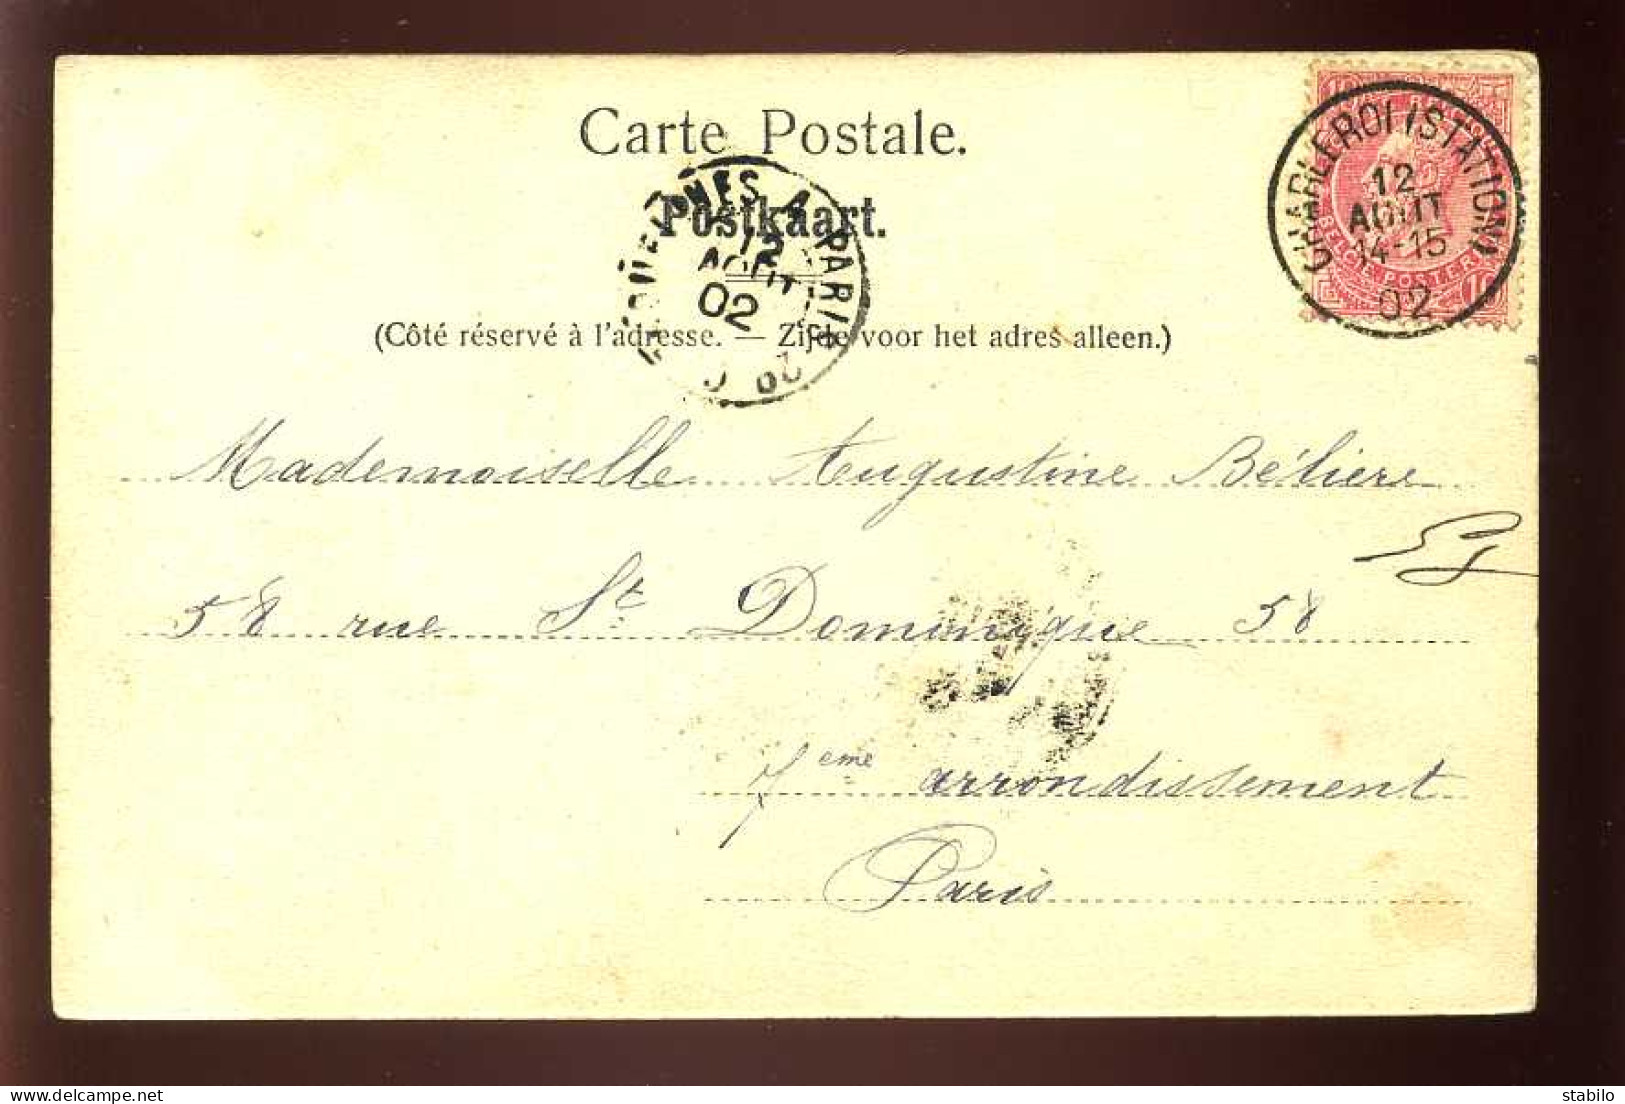 Carte Postale.
Postkaart.
(Côté réservé à l'adresse. — Zijde voor het adres alleen.)
CHARLEROI (STATION)
12
AOUT
14-15
02
BELGIE POSTERIJ
10
A PARIS
12
AOUT
02
Mademoiselle Augustine Bélière
58 rue St Dominique 58
7eme arrondissement
Paris
delcampe.net
stabilo